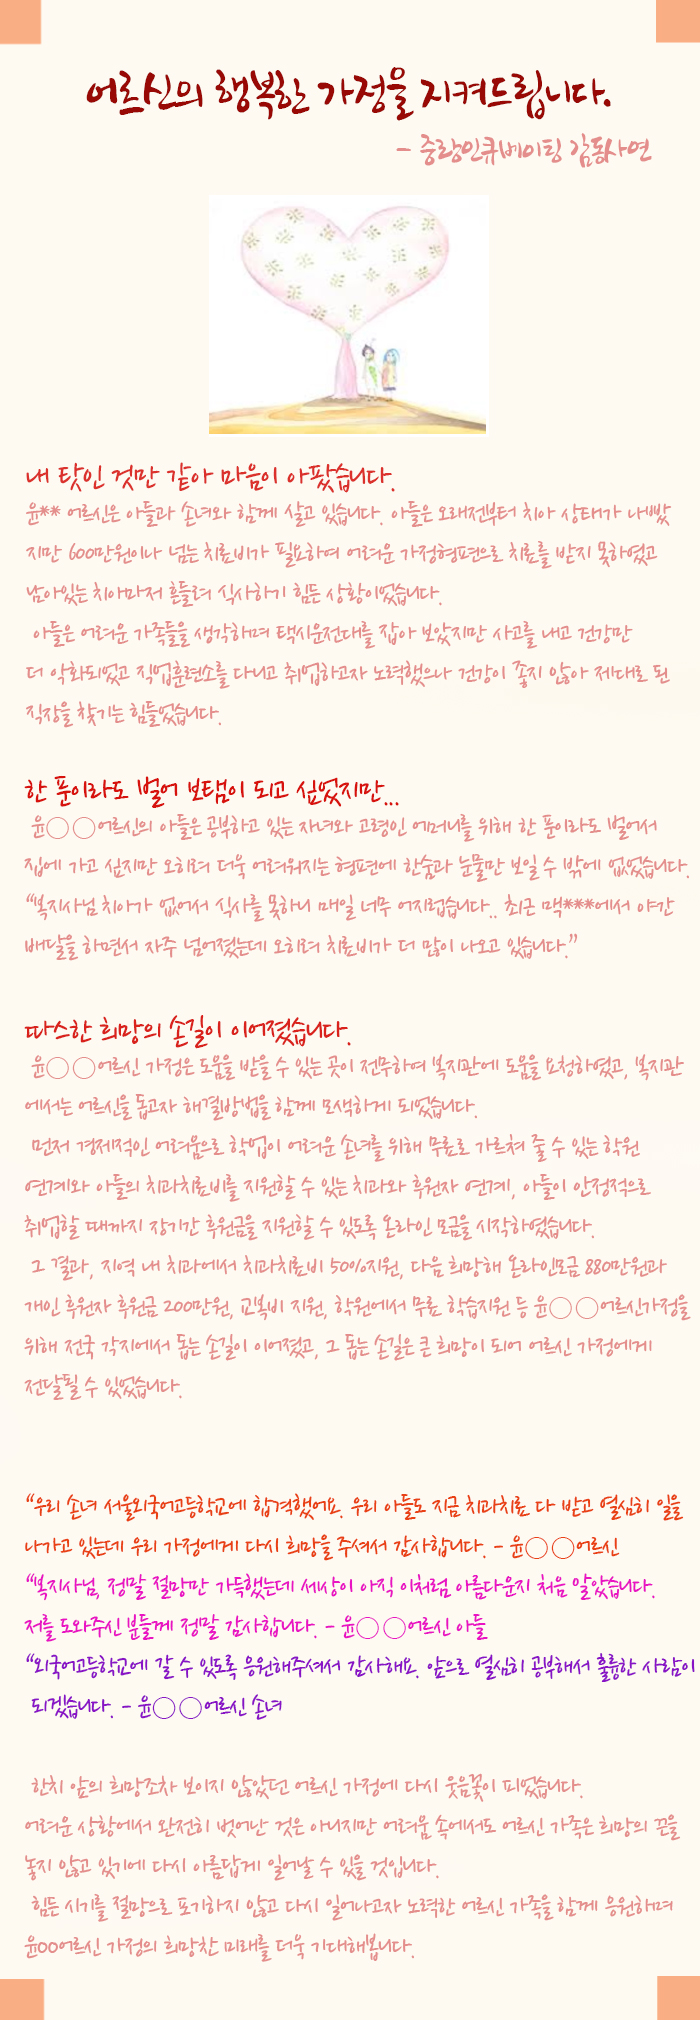 어르신의 행복한 가정을 지켜드립니다.
- 중랑인큐베이팅 감동사연
내 탓인 것만 같아 마음이 아팠습니다.
윤** 어르신은 아들과 손녀와 함께 살고 있습니다. 아들은 오래전부터 치아 상태가 나빴
지만 600만원이나 넘는 치료비가 필요하여 어려운 가정형편으로 치료를 받지 못하였고
남아있는 치아마저 흔들려 식사하기 힘든 상황이었습니다.
아들은 어려운 가족들을 생각하며 택시운전대를 잡아 보았지만 사고를 내고 건강만
더 악화되었고 직업훈련소를 다니고 취업하고자 노력했으나 건강이 좋지 않아 제대로 된
직장을 찾기는 힘들었습니다.
한 푼이라도 벌어 보탬이 되고 싶었지만...
윤○○어르신의 아들은 공부하고 있는 자녀와 고령인 어머니를 위해 한 푼이라도 벌어서
집에 가고 싶지만 오히려 더욱 어려워지는 형편에 한숨과 눈물만 보일 수 밖에 없었습니다.
“복지사님 치아가 없어서 식사를 못하니 매일 너무 어지럽습니다.. 최근 맥***에서 야간
배달을 하면서 자주 넘어졌는데 오히려 치료비가 더 많이 나오고 있습니다.”
따스한 희망의 손길이 이어졌습니다.
윤○○어르신 가정은 도움을 받을 수 있는 곳이 전무하여 복지관에 도움을 요청하였고, 복지관
에서는 어르신을 돕고자 해결방법을 함께 모색하게 되었습니다.
먼저 경제적인 어려움으로 학업이 어려운 손녀를 위해 무료로 가르쳐 줄 수 있는 학원
연계와 아들의 치과치료비를 지원할 수 있는 치과와 후원자 연계, 아들이 안정적으로
취업할 때까지 장기간 후원금을 지원할 수 있도록 온라인 모금을 시작하였습니다.
그 결과, 지역 내 치과에서 치과치료비 50%지원, 다음 희망해 온라인모금 880만원과
개인 후원자 후원금 200만원, 교복비 지원, 학원에서 무료 학습지원 등 윤○○어르신가정을
위해 전국 각지에서 돕는 손길이 이어졌고, 그 돕는 손길은 큰 희망이 되어 어르신 가정에게
전달될 수 있었습니다.
“우리 손녀 서울외국어고등학교에 합격했어요. 우리 아들도 지금 치과치료 다 받고 열심히 일을
나가고 있는데 우리 가정에게 다시 희망을 주셔서 감사합니다. - 윤○○어르신
“복지사님, 정말 절망만 가득했는데 세상이 아직 이처럼 아름다운지 처음 알았습니다.
저를 도와주신 분들께 정말 감사합니다. - 윤○○어르신 아들
“외국어고등학교에 갈 수 있도록 응원해주셔서 감사해요. 앞으로 열심히 공부해서 훌륭한 사람이
되겠습니다. - 윤○○어르신 손녀
한치 앞의 희망조차 보이지 않았던 어르신 가정에 다시 웃음꽃이 피었습니다.
어려운 상황에서 완전히 벗어난 것은 아니지만 어려움 속에서도 어르신 가족은 희망의 끈을
놓지 않고 있기에 다시 아름답게 일어날 수 있을 것입니다.
힘든 시기를 절망으로 포기하지 않고 다시 일어나고자 노력한 어르신 가족을 함께 응원하며
윤00어르신 가정의 희망찬 미래를 더욱 기대해봅니다.